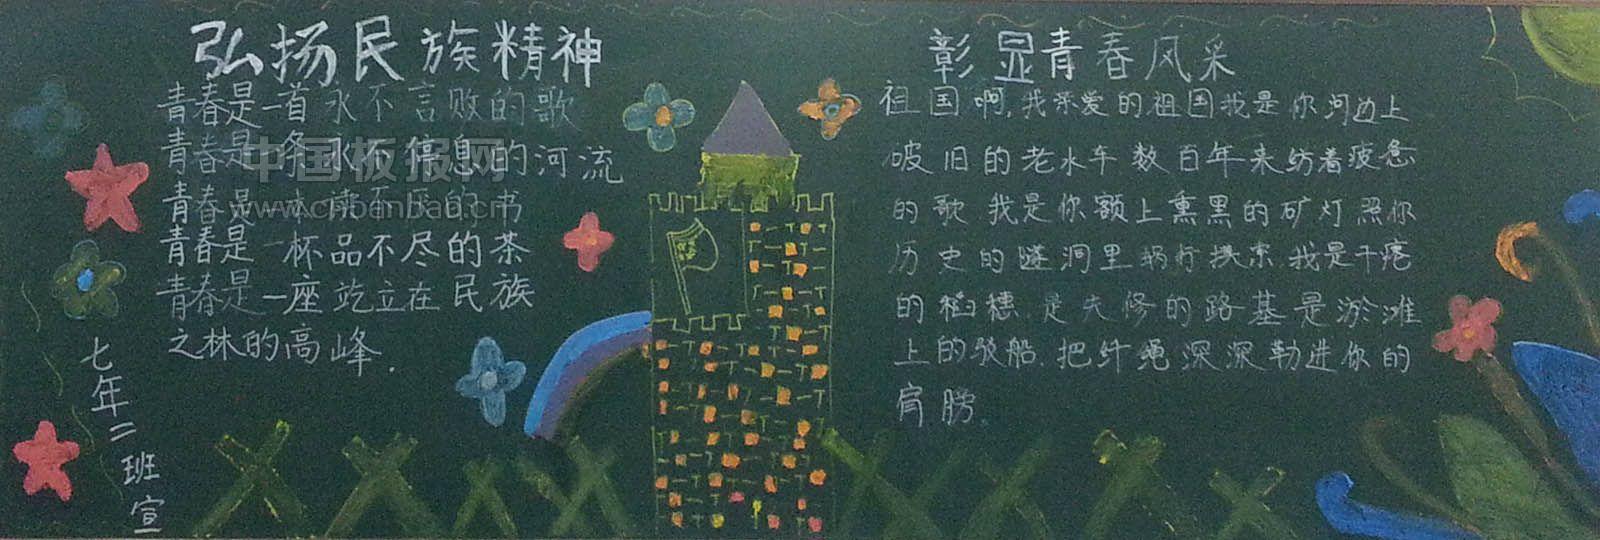 弘扬民族精神
青春是一首永不言败的歌
青春是一条永不停息的河流
青春是一本读不厌的书
青春是一杯品不尽的茶
青春是一座屹立在民族
之林的高峰.
七年二班宣
彰显青春风采
祖国啊,我亲爱的祖国我是你河边上
破旧的老水车数百年来纺着疲惫
的歌 我是你额上熏黑的矿灯照你
历史的隧洞里蜗行摸索.我是干瘪
的稻穗.是失修的路基是淤滩
上的驳船.把纤绳深深勒进你的
肩膀.
中国板报网
www.cnbanbao.cn